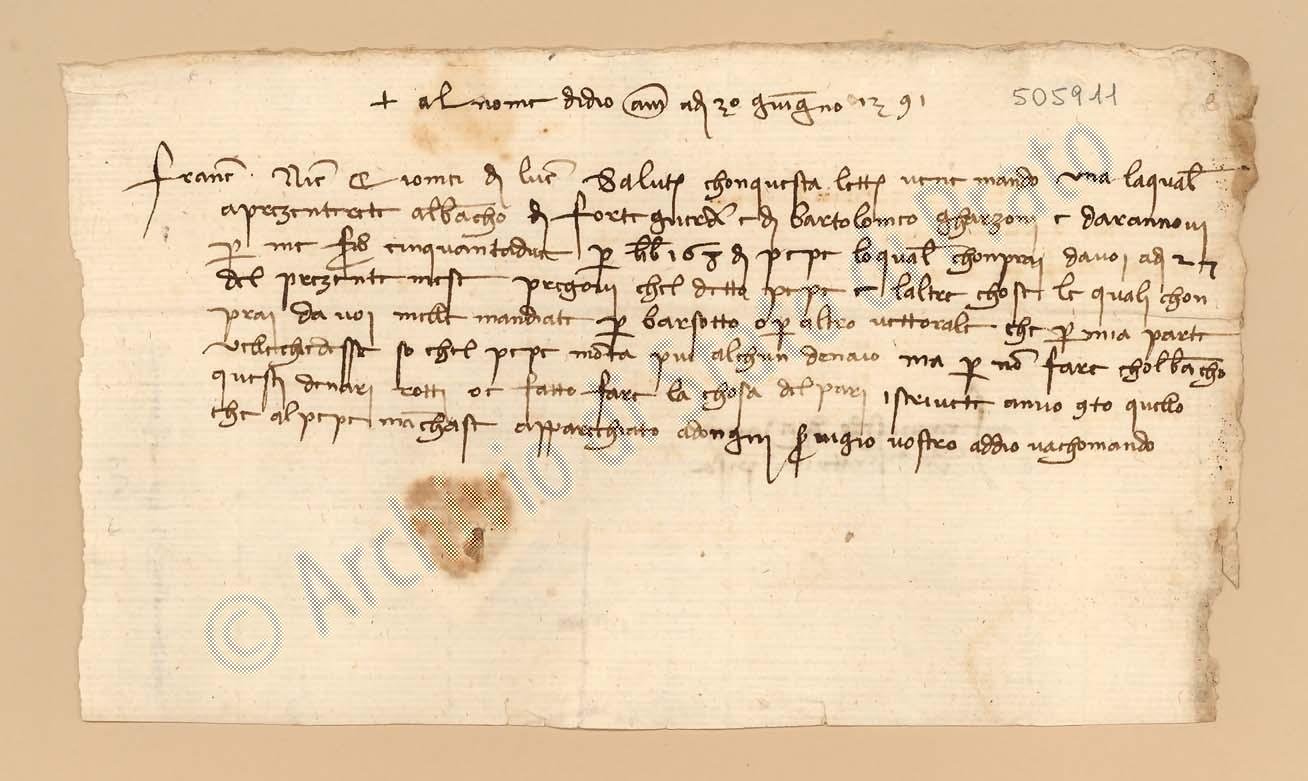 + al nome didio am adj 30 giugno 1391 505911
franc Nic Salut chonquesta lett vene mando una laqual
aprezenterete albancho dj forteguerdi e di bartolomeo gharzoni e darannovi
p me cinquantadue p 163 dj pepe loqual chonprai davoi adj 27
del prezente mese pregovi chel detto pepe e laltre chose le quali chon
prai da voi melle mandiate p barsotto o p altro vettorale che p mia parte
vellechiedesse so chel pepe monta piu alchun denaio ma p non fare cholbancho
questi denari rotti oe fatto fare la chosa del pari iscrivete amio conto quello
che alpepe manchase apparechiato adongnj vostro addio vachomando
© Archivio di Stato Prato